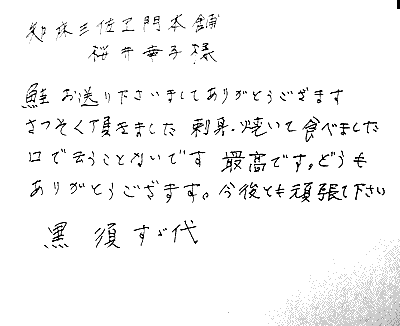 知床三佐ヱ門本舗
桜井幸子様
鮭お送り下さいましてありがとうございます
さっそく頂きました 刺身、焼いて食べました
口で云うことないです 最高です。どうも
ありがとうございます。今後とも頑張て下さい
黒須すゞ代